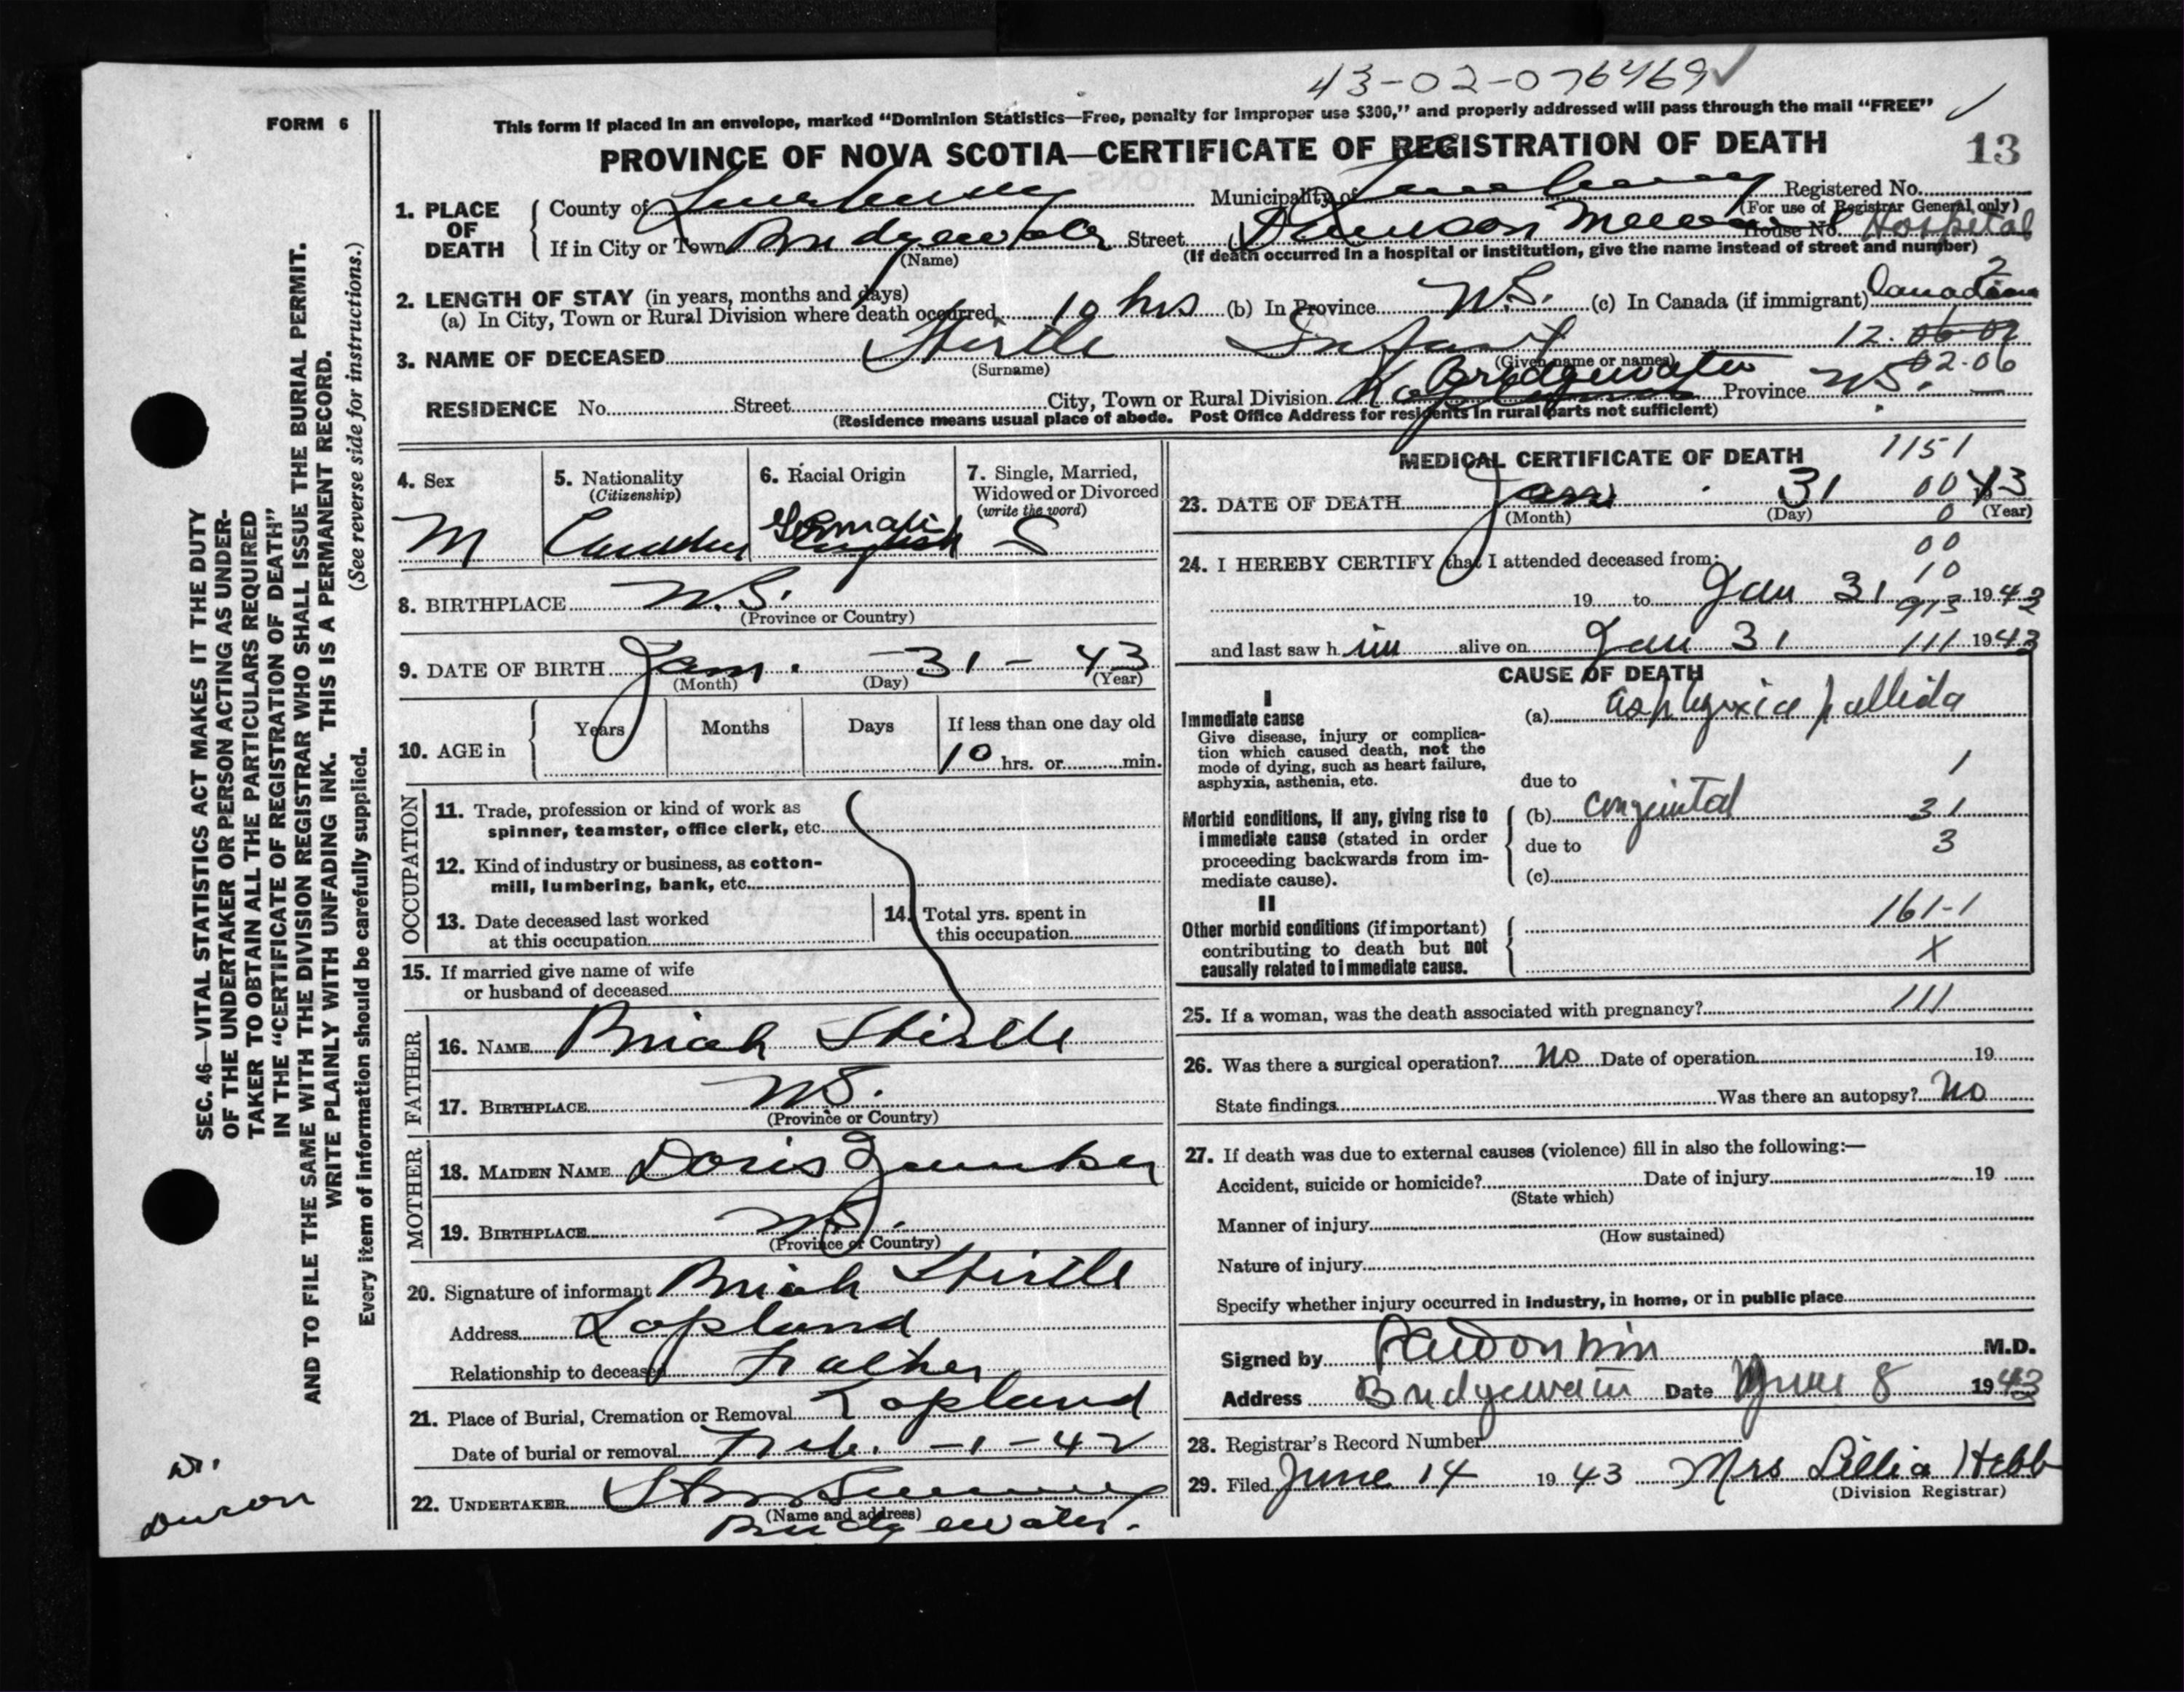 43-02-076469 ✓
FORM 6
This form if placed in an envelope, marked “Dominion Statistics—Free, penalty for improper use $300,” and properly addressed will pass through the mail “FREE”
PROVINCE OF NOVA SCOTIA—CERTIFICATE OF REGISTRATION OF DEATH
13
1. PLACE OF DEATH
County of Lunenburg Municipality of Lunenburg Registered No.
(For use of Registrar General only)
If in City or Town Bridgewater Street Dawson Mem House No. Hospital
(Name) (If death occurred in a hospital or institution, give the name instead of street and number)
2. LENGTH OF STAY (in years, months and days)
2
(a) In City, Town or Rural Division where death occurred 10 hrs (b) In Province N.S. (c) In Canada (if immigrant) Canadian
12. 06-02
3. NAME OF DECEASED Hirtle Infant
(Surname) (Given name or names)
02-06
Bridgewater
RESIDENCE No. Street City, Town or Rural Division Province N.S.
(Residence means usual place of abode. Post Office Address for residents in rural parts not sufficient)
4. Sex
M
5. Nationality
(Citizenship)
Canadian
6. Racial Origin
German
English
7. Single, Married, Widowed or Divorced
(write the word)
S
8. BIRTHPLACE N.S.
(Province or Country)
9. DATE OF BIRTH Jan. -31- 43
(Month) (Day) (Year)
10. AGE in
Years Months Days If less than one day old
10 hrs. or min.
OCCUPATION
11. Trade, profession or kind of work as
spinner, teamster, office clerk, etc.
12. Kind of industry or business, as cotton-
mill, lumbering, bank, etc.
13. Date deceased last worked
at this occupation
14. Total yrs. spent in
this occupation
15. If married give name of wife
or husband of deceased
FATHER
16. NAME Briah Hirtle
17. BIRTHPLACE N.S.
(Province or Country)
MOTHER
18. MAIDEN NAME Doris
19. BIRTHPLACE N.S.
(Province or Country)
20. Signature of informant Briah Hirtle
Address Lapland
Relationship to deceased Father
21. Place of Burial, Cremation or Removal Lapland
Date of burial or removal Feb. -1-42
22. UNDERTAKER
(Name and address)
Bridgewater.
MEDICAL CERTIFICATE OF DEATH
1151
23. DATE OF DEATH Jan 31 00 43
(Month) (Day) (Year)
0
00
24. I HEREBY CERTIFY that I attended deceased from:
10
19 to Jan 31 1943
913
and last saw h im alive on Jan 31 111 1943
CAUSE OF DEATH
I
Immediate cause
Give disease, injury or complica-
tion which caused death, not the
mode of dying, such as heart failure,
asphyxia, asthenia, etc.
(a) asphyxia pallida
1
due to
Morbid conditions, if any, giving rise to
immediate cause (stated in order
proceeding backwards from im-
mediate cause).
(b) congenital 31
due to 3
(c)
II
Other morbid conditions (if important)
contributing to death but not
causally related to immediate cause.
161-1
X
25. If a woman, was the death associated with pregnancy? 111
26. Was there a surgical operation? No Date of operation 19
State findings Was there an autopsy? No
27. If death was due to external causes (violence) fill in also the following:—
Accident, suicide or homicide? Date of injury 19
(State which)
Manner of injury
(How sustained)
Nature of injury
Specify whether injury occurred in industry, in home, or in public place
Signed by M.D.
Address Bridgewater Date June 8 1943
28. Registrar’s Record Number
29. Filed June 14 1943 Mrs Lillia Hebb
(Division Registrar)
SEC. 46—VITAL STATISTICS ACT MAKES IT THE DUTY
OF THE UNDERTAKER OR PERSON ACTING AS UNDER-
TAKER TO OBTAIN ALL THE PARTICULARS REQUIRED
IN THE “CERTIFICATE OF REGISTRATION OF DEATH”
AND TO FILE THE SAME WITH THE DIVISION REGISTRAR WHO SHALL ISSUE THE BURIAL PERMIT.
WRITE PLAINLY WITH UNFADING INK. THIS IS A PERMANENT RECORD.
Every item of information should be carefully supplied. (See reverse side for instructions.)